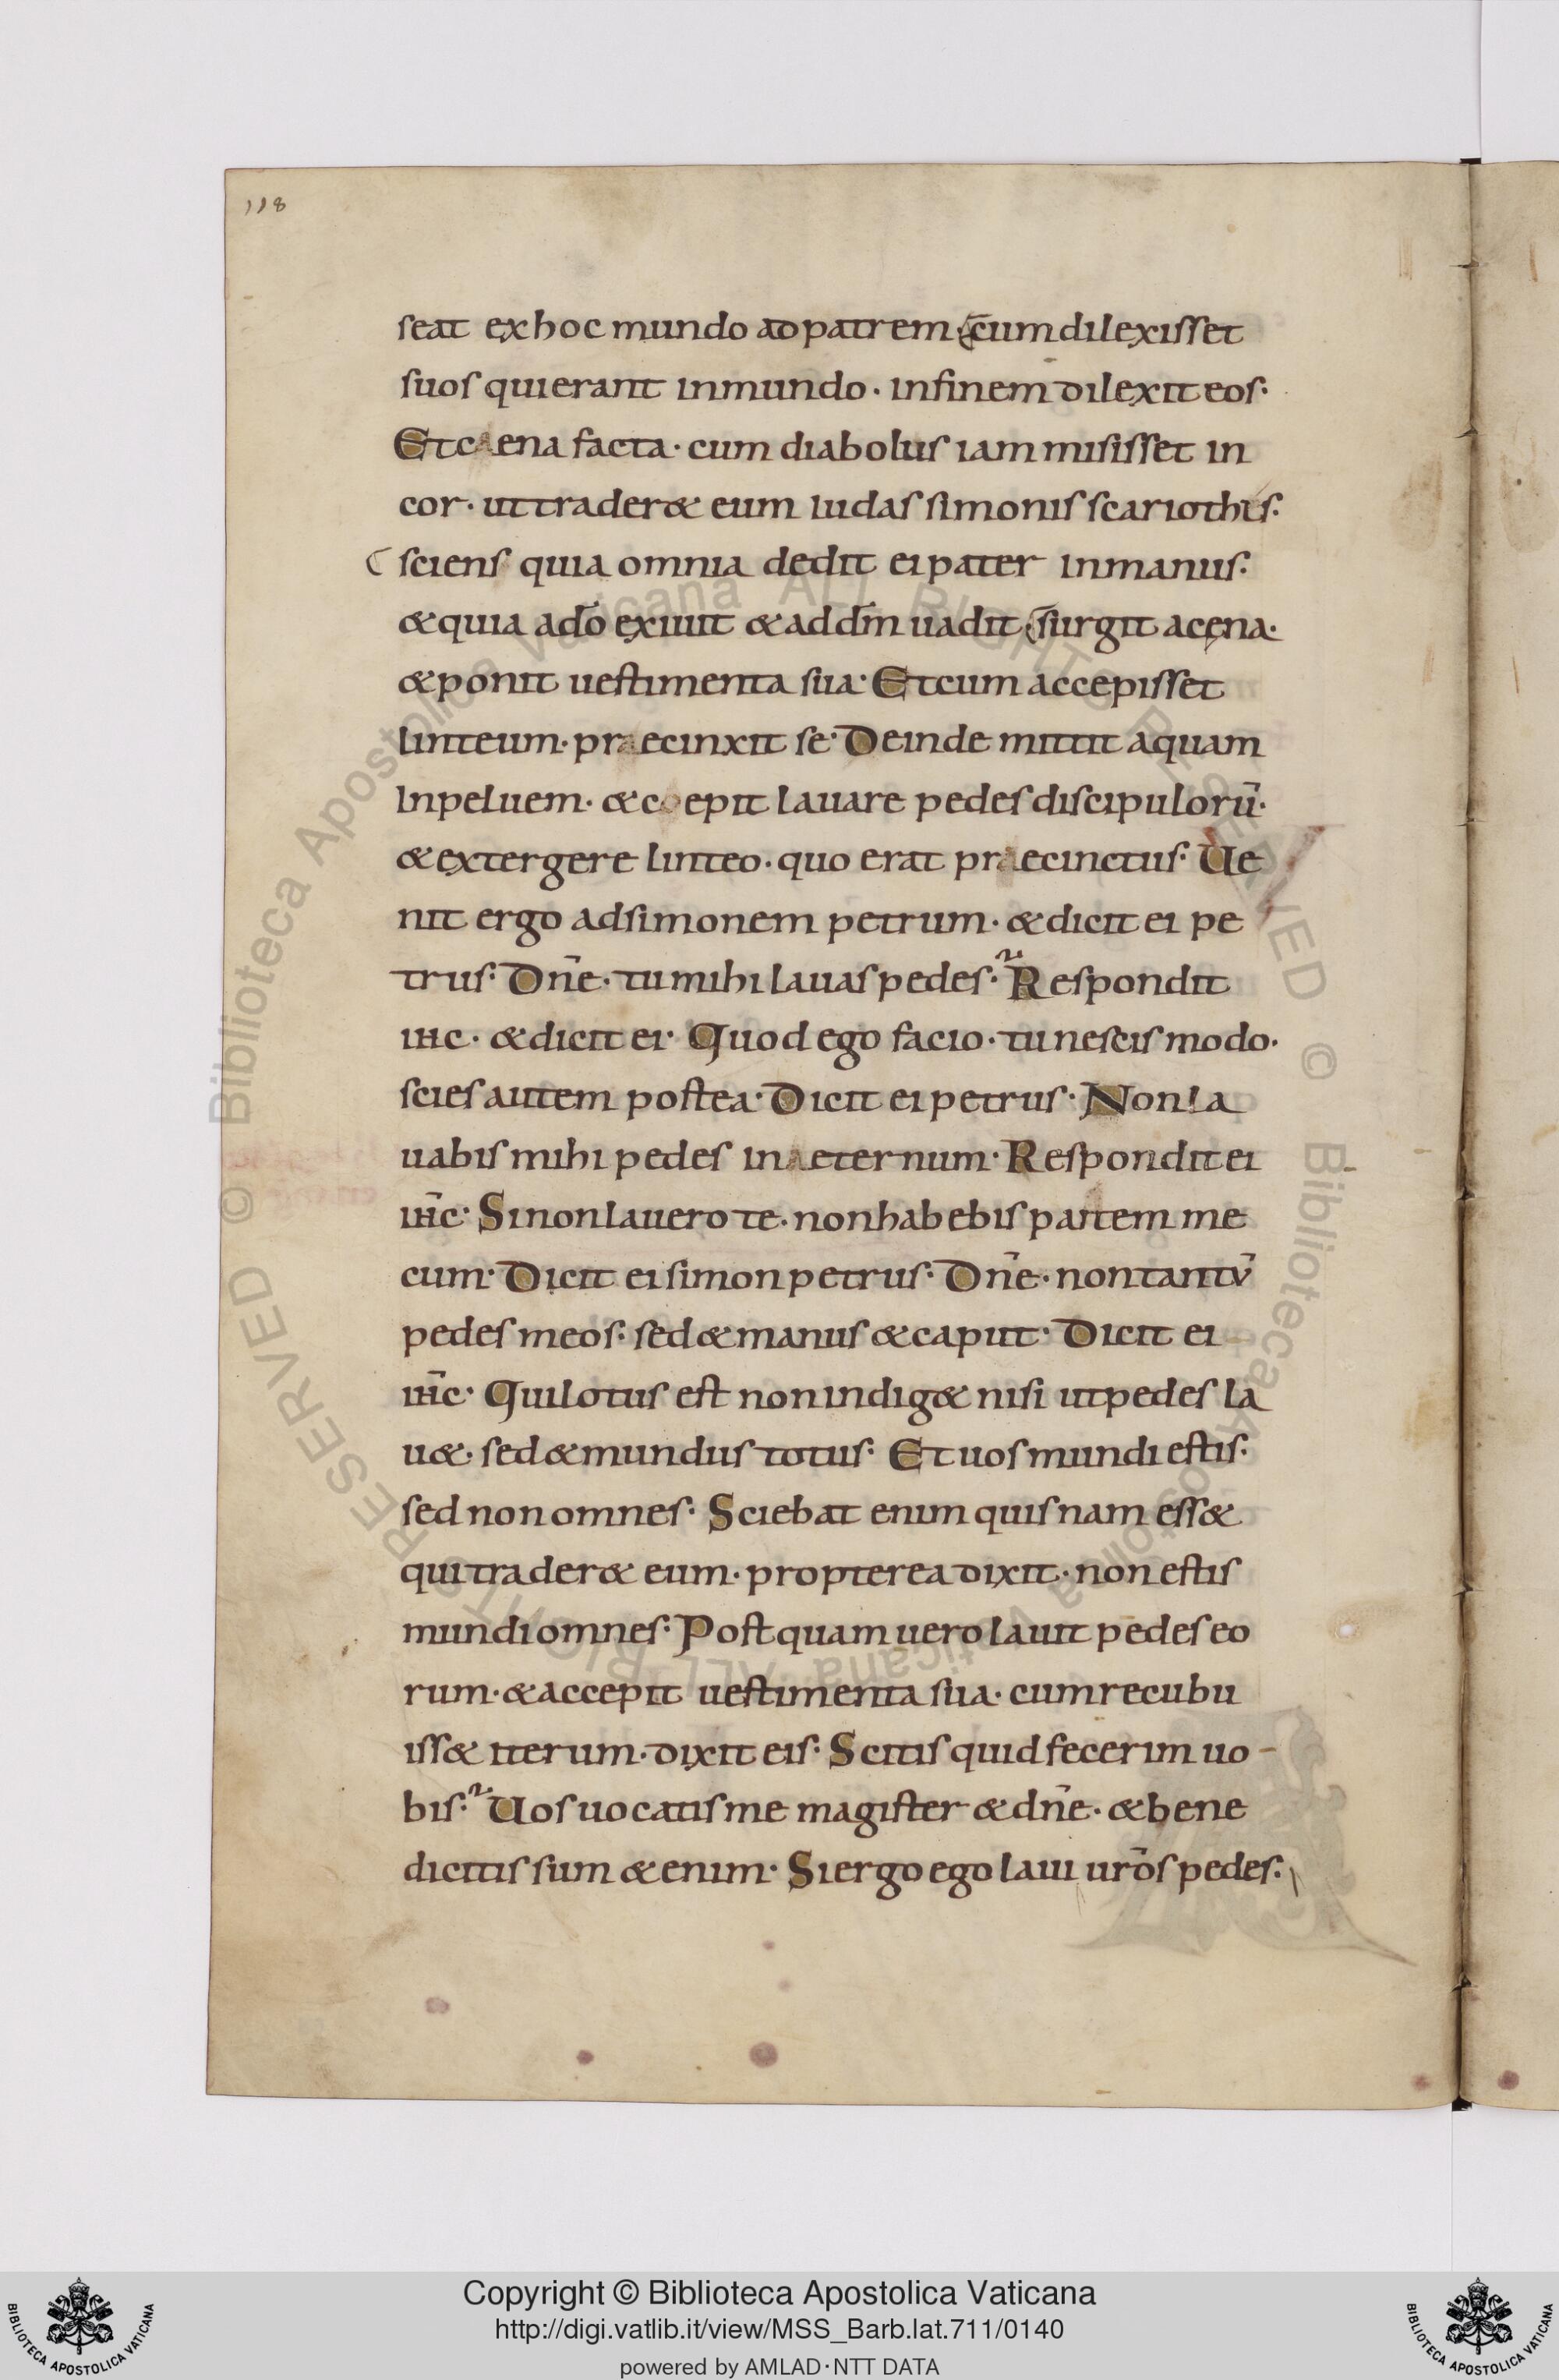 118
seat ex hoc mundo ad patrem · cum dilexisset
suos qui erant in mundo · in finem dilexit eos·
Et caena facta · cum diabolus iam misisset in
cor · ut traderet eum iudas simonis scariothis·
sciens quia omnia dedit ei pater in manus·
& quia a dō exiuit & ad dm̄ uadit · surgit a cęna·
& ponit uestimenta sua· Et cum accepisset
linteum· praecinxit se· Deinde mittit aquam
In peluem· & coepit lauare pedes discipulorū·
& extergere linteo· quo erat praecinctus· Ue
nit ergo ad simonem petrum· & dicit ei pe
trus· Dn̄e· tu mihi lauas pedes· Respondit
ihc· & dicit ei· Quod ego facio· tu nescis modo·
scies autem postea· Dicit ei petrus· Non la
uabis mihi pedes in aeternum· Respondit ei
ih̄c· Si non lauero te· non habebis partem me
cum· Dicit ei simon petrus· Dn̄e· non tantū
pedes meos· sed & manus & caput· Dicit ei
ih̄c· Qui lotus est non indiget nisi ut pedes la
u&· sed & mundus totus· Et uos mundi estis·
sed non omnes· Sciebat enim quisnam ess&
qui trader& eum· propterea dixit· non estis
mundi omnes· Postquam uero lauit pedes eo
rum· & accepit uestimenta sua· cum recubu
iss& iterum· dixit eis· Scitis quid fecerim uo-
bis· Uos uocatis me magister & dn̄e· & bene
dicitis sum & enim· Si ergo ego laui ur̄os pedes·
© Biblioteca Apostolica Vaticana ALL RIGHTS RESERVED
© Biblioteca Apostolica Vaticana ALL RIGHTS RESERVED
Copyright © Biblioteca Apostolica Vaticana
http://digi.vatlib.it/view/MSS_Barb.lat.711/0140
powered by AMLAD·NTT DATA
BIBLIOTECA APOSTOLICA VATICANA
BIBLIOTECA APOSTOLICA VATICANA